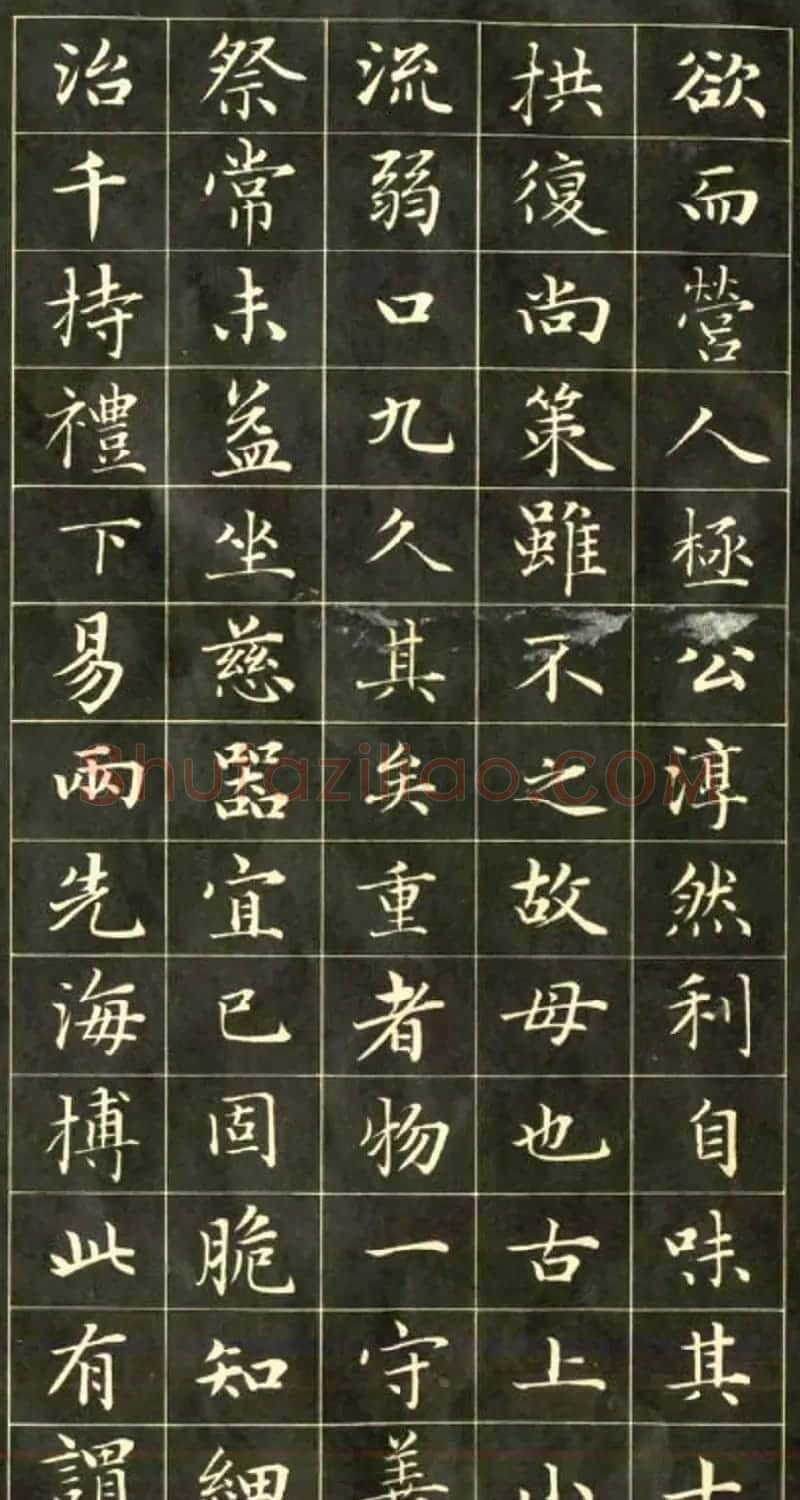 欲而營人極公淳然利自味其
拱復尚策雖不之故母也古上
流弱口九久其矣重者物一守
祭常未益坐慈器宜已固脆知細
治千持禮下易兩先海搏此有謂
Shufaziliao.COM